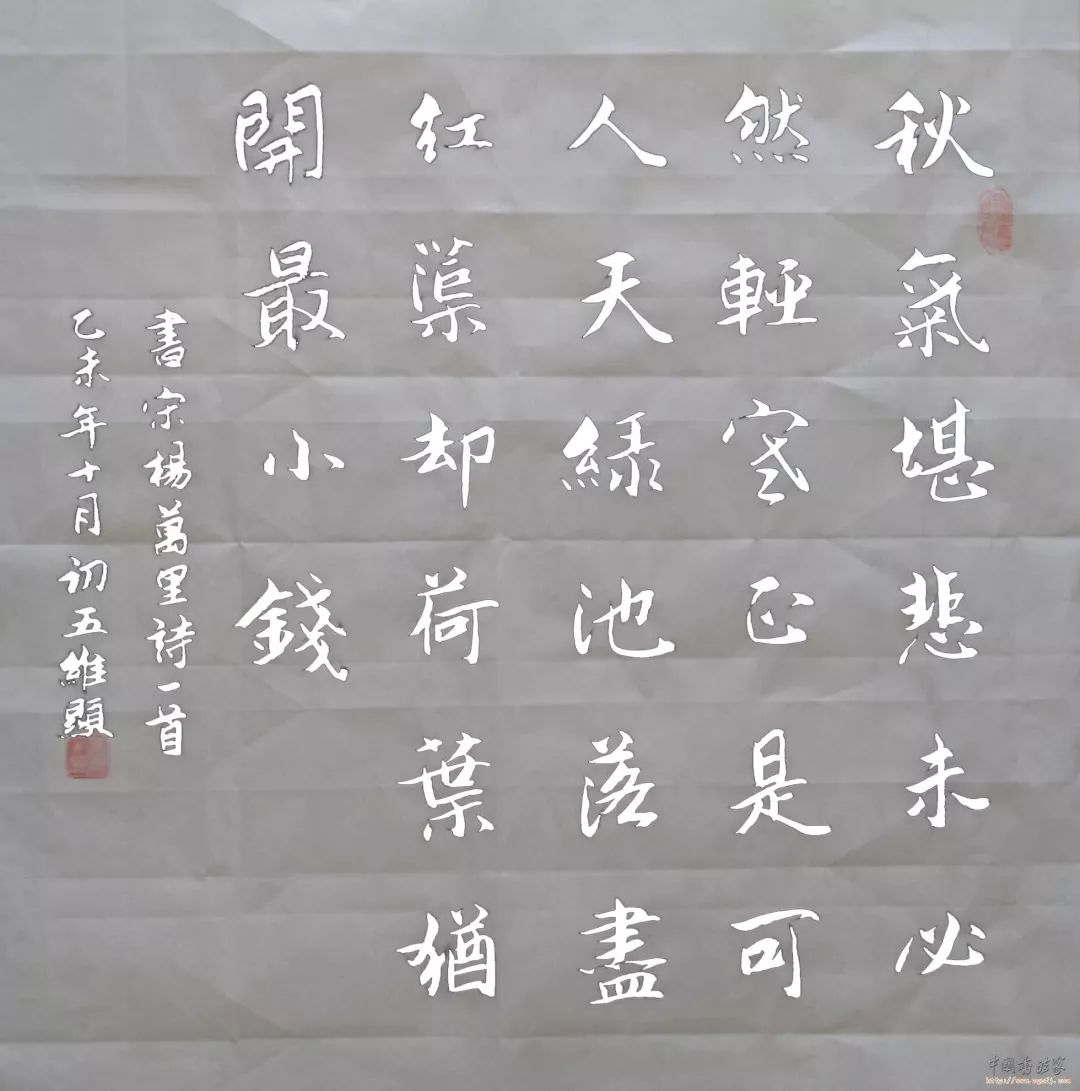 秋氣堪悲未必
然輕寒正是可
人天綠池落盡
紅蕖却荷葉猶
開最小錢
書宋楊萬里詩一首
乙未年十月初五維顯
中國書法家